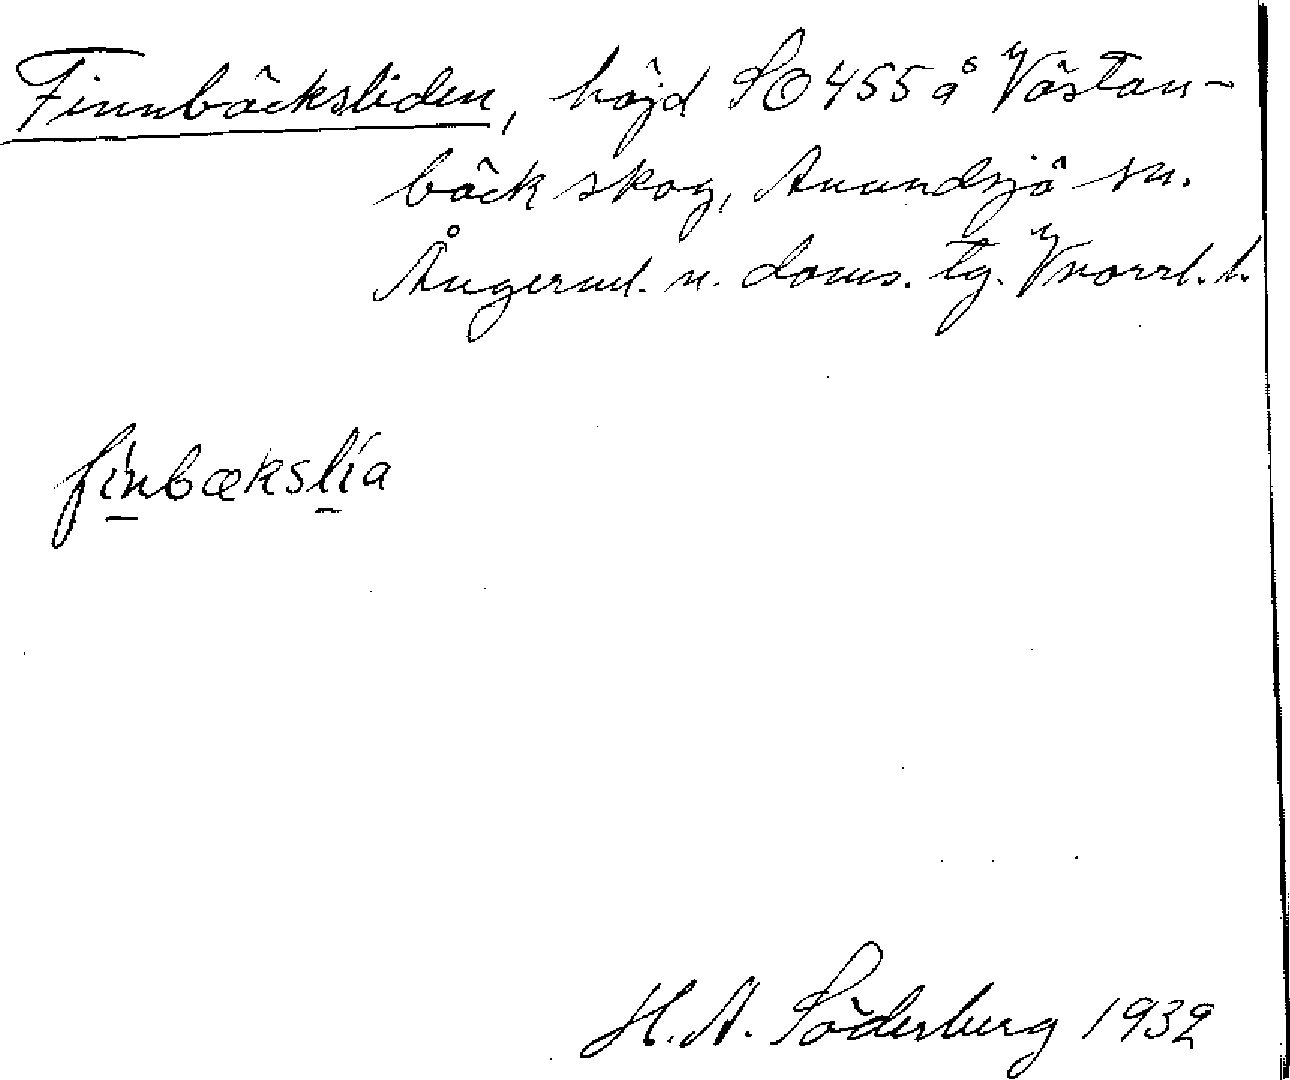 Finnbäcksliden, höjd SO 455 å Västan-
bäck skog, Anundsjö sn.
Ångerml. n. doms. tg. Vnorrl. l.
finbækslia
H. A. Söderberg 1932